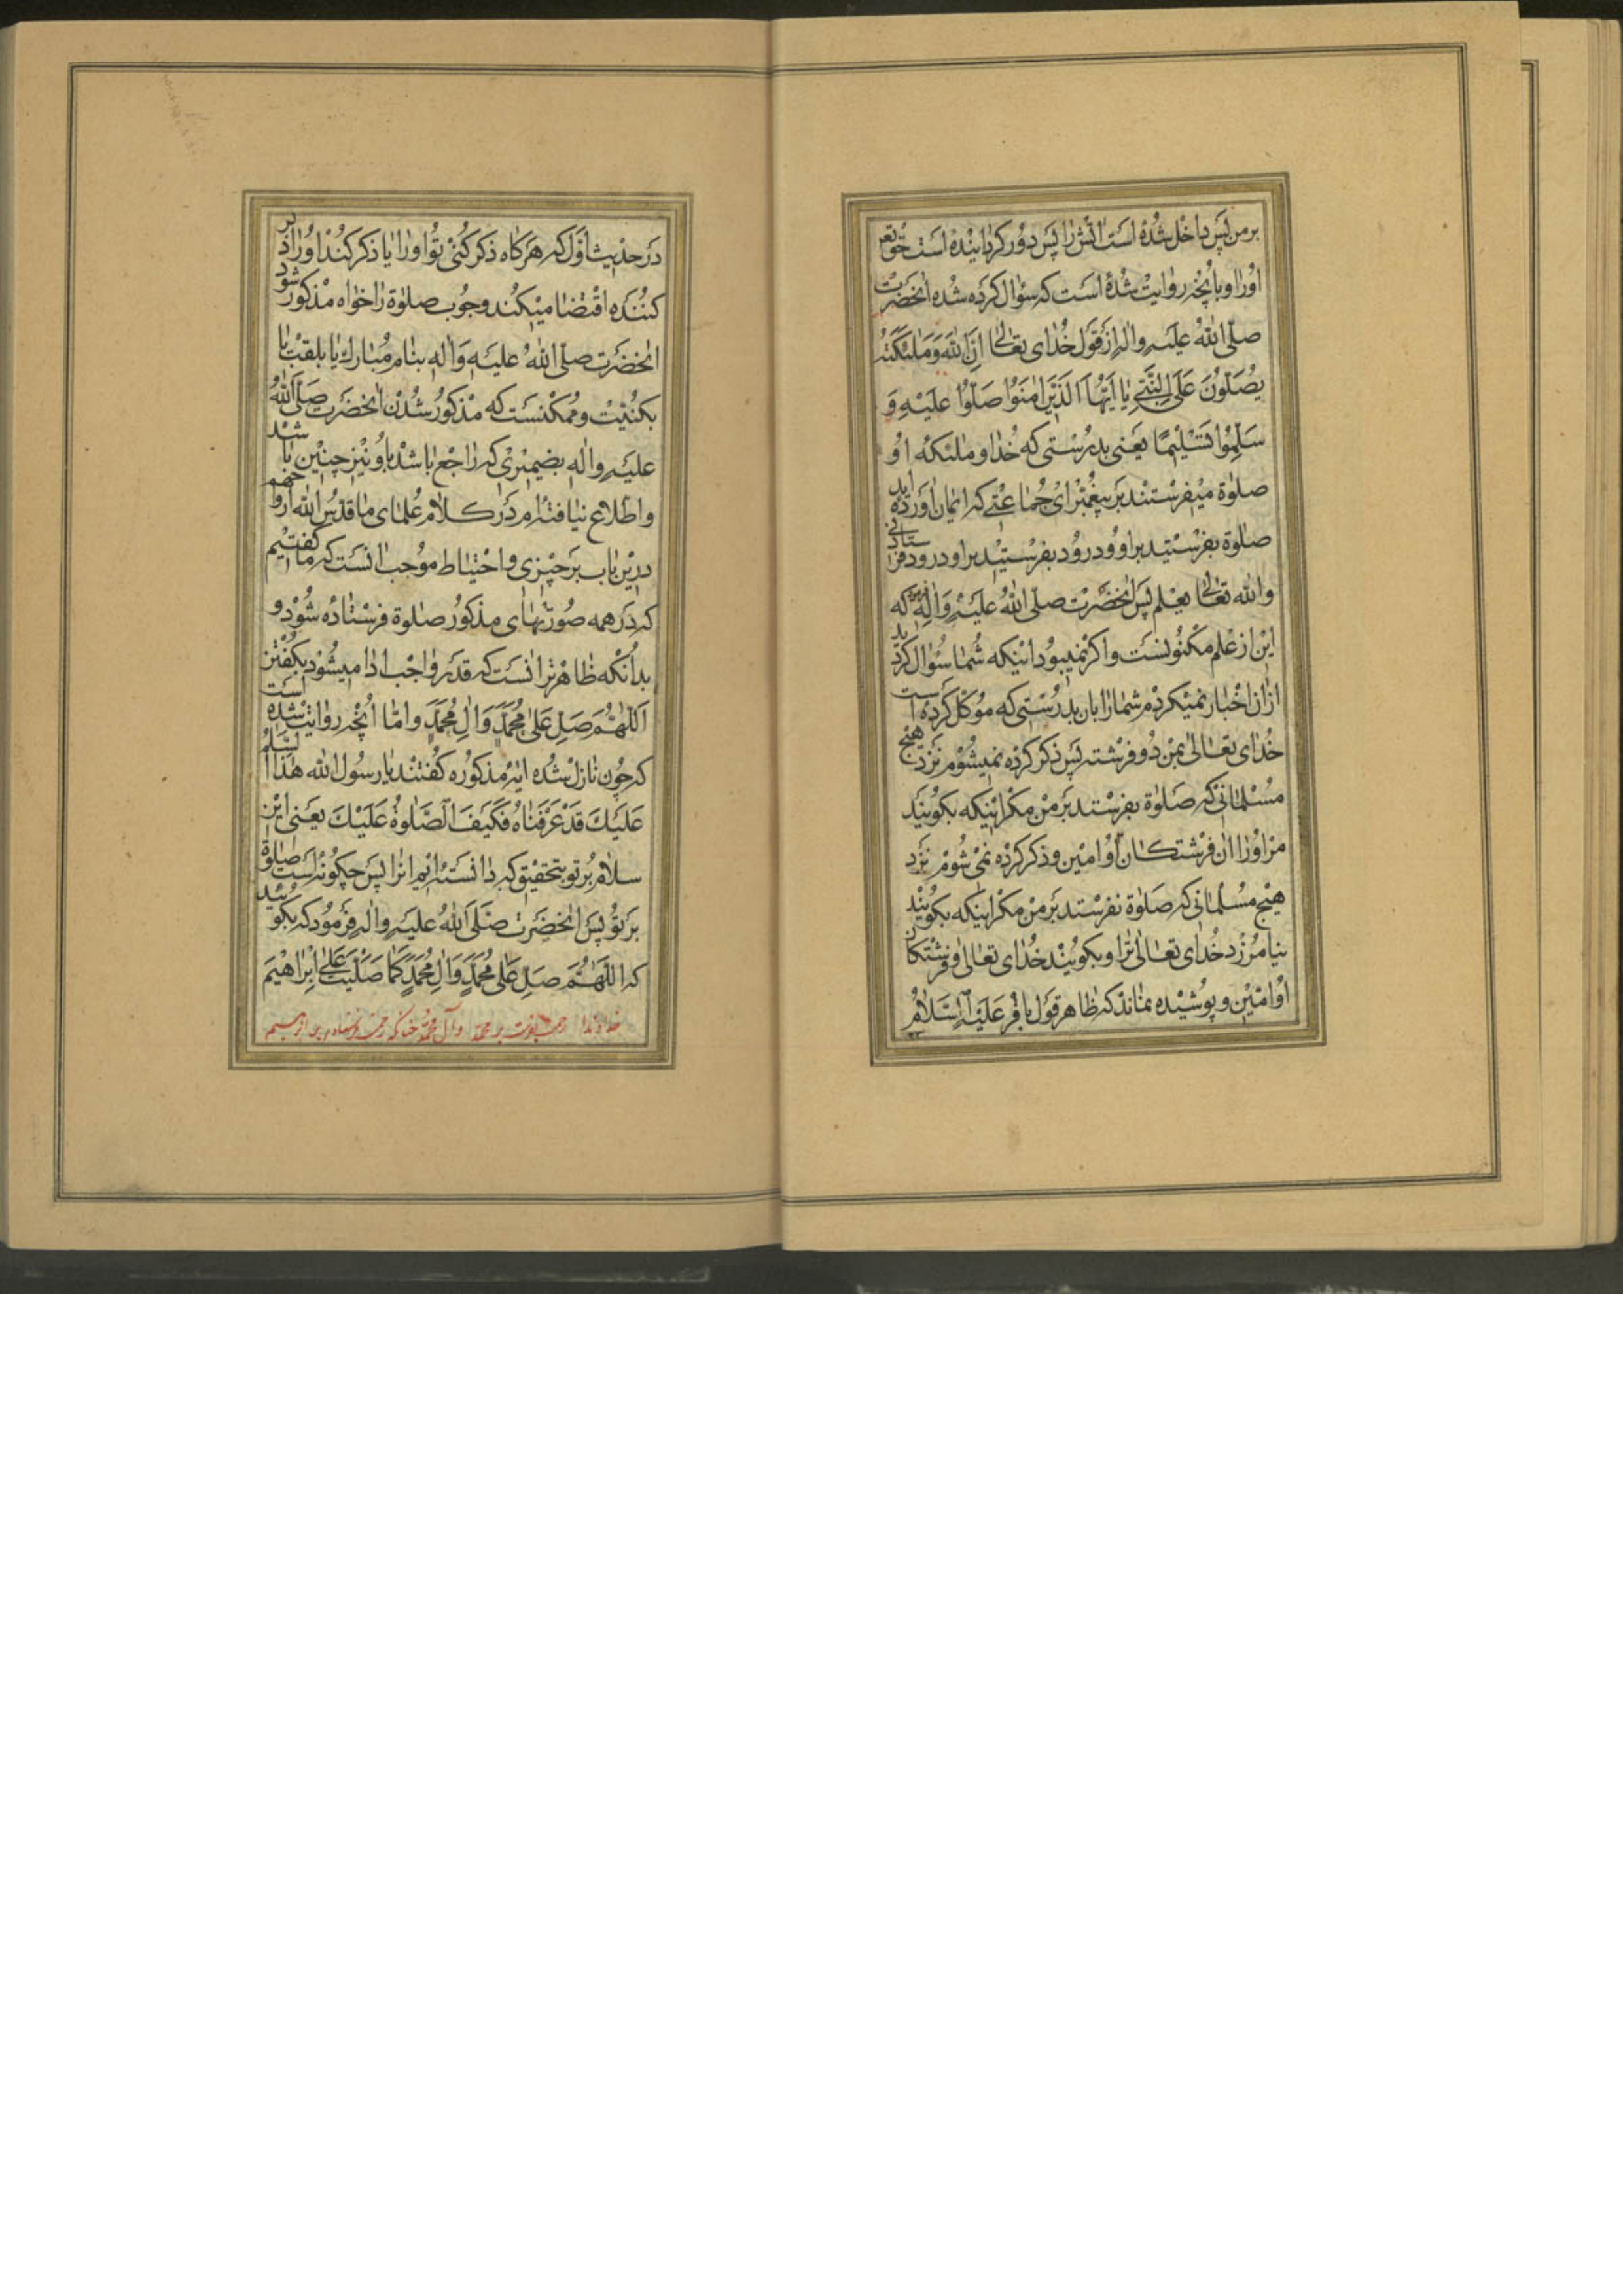 بر من پس داخل شده است اتش را پس دور کردانیده است حق تعر
اورا و بانچه روایت شده است که سؤال کرده شده انحضرت
صلّی الله علیه واله از قول خدای تعالی انّ الله و ملئکته
یصلّون علی النّبی یا ایّها الّذین امنوا صلّوا علیه و
سلّموا تسلیمًا یعنی بدرستی که خدا و ملئکه او
صلوة میفرستند بر پیغمبر ای جماعتی که ایمان اورده اید
صلوة بفرستید بر او و درود بفرستید بر او درود فرستادنی
والله تعالی یعلم پس انحضرت صلّی الله علیه واله که
این از علم مکنونست واکر نمیبود اینکه شما سؤال کردید
ازان اخبار نمیکردم شما را بان بدرستی که موکل کرده است
خدای تعالی بمن دو فرشته پس ذکر کرده نمیشوم نزد هیچ
مسلمانی که صلوة بفرستد بر من مکر اینکه بکویند
مر اورا ان فرشتکان او امین و ذکر کرده نمی شوم نزد
هیچ مسلمانی که صلوة نفرستد بر من مکر اینکه بکویند
نیامرزد خدای تعالی ترا و بکویند خدای تعالی و فرشتکان
او امین و پوشیده نماند که ظاهر قول باقر علیه السلام
در حدیث اول که هر کاه ذکر کنی تو اورا یا ذکر کند اورا ذکر
کننده اقتضا میکند وجوب صلوة را خواه مذکور شود
انحضرت صلّی الله علیه واله بنام مبارک یا بلقب یا
بکنیت و ممکنست که مذکور شدن انحضرت صلّی الله
علیه واله بضمیری که راجع باشد باو نیز چنین باشد
واطلاع نیافته ام در کلام علمای ما قدس الله ارواحهم
درین باب بر چیزی و احتیاط موجب انست که ما کفتیم
که در همه صورتهای مذکور صلوة فرستاده شود و
بدانکه ظاهرتر انست که قدر واجب ادا میشود بکفتن
اللّهمّ صلّ علی محمّد وال محمّد وامّا انچه روایت شده است
که چون نازل شده ایه مذکوره کفتند یا رسول الله هذا السّلام
علیک قد عرفناه فکیف الصّلوة علیک یعنی این
سلام بر تو بتحقیق که دانسته ایم انرا پس چکونه است صلوة
بر تو پس انحضرت صلّی الله علیه واله فرمود که بکوئید
که اللّهمّ صلّ علی محمّد وال محمّد کما صلّیت علی ابراهیم
خداوندا رحمت بفرست بر محمّد و آل محمّد چنانکه رحمت فرستاده بر ابرهیم